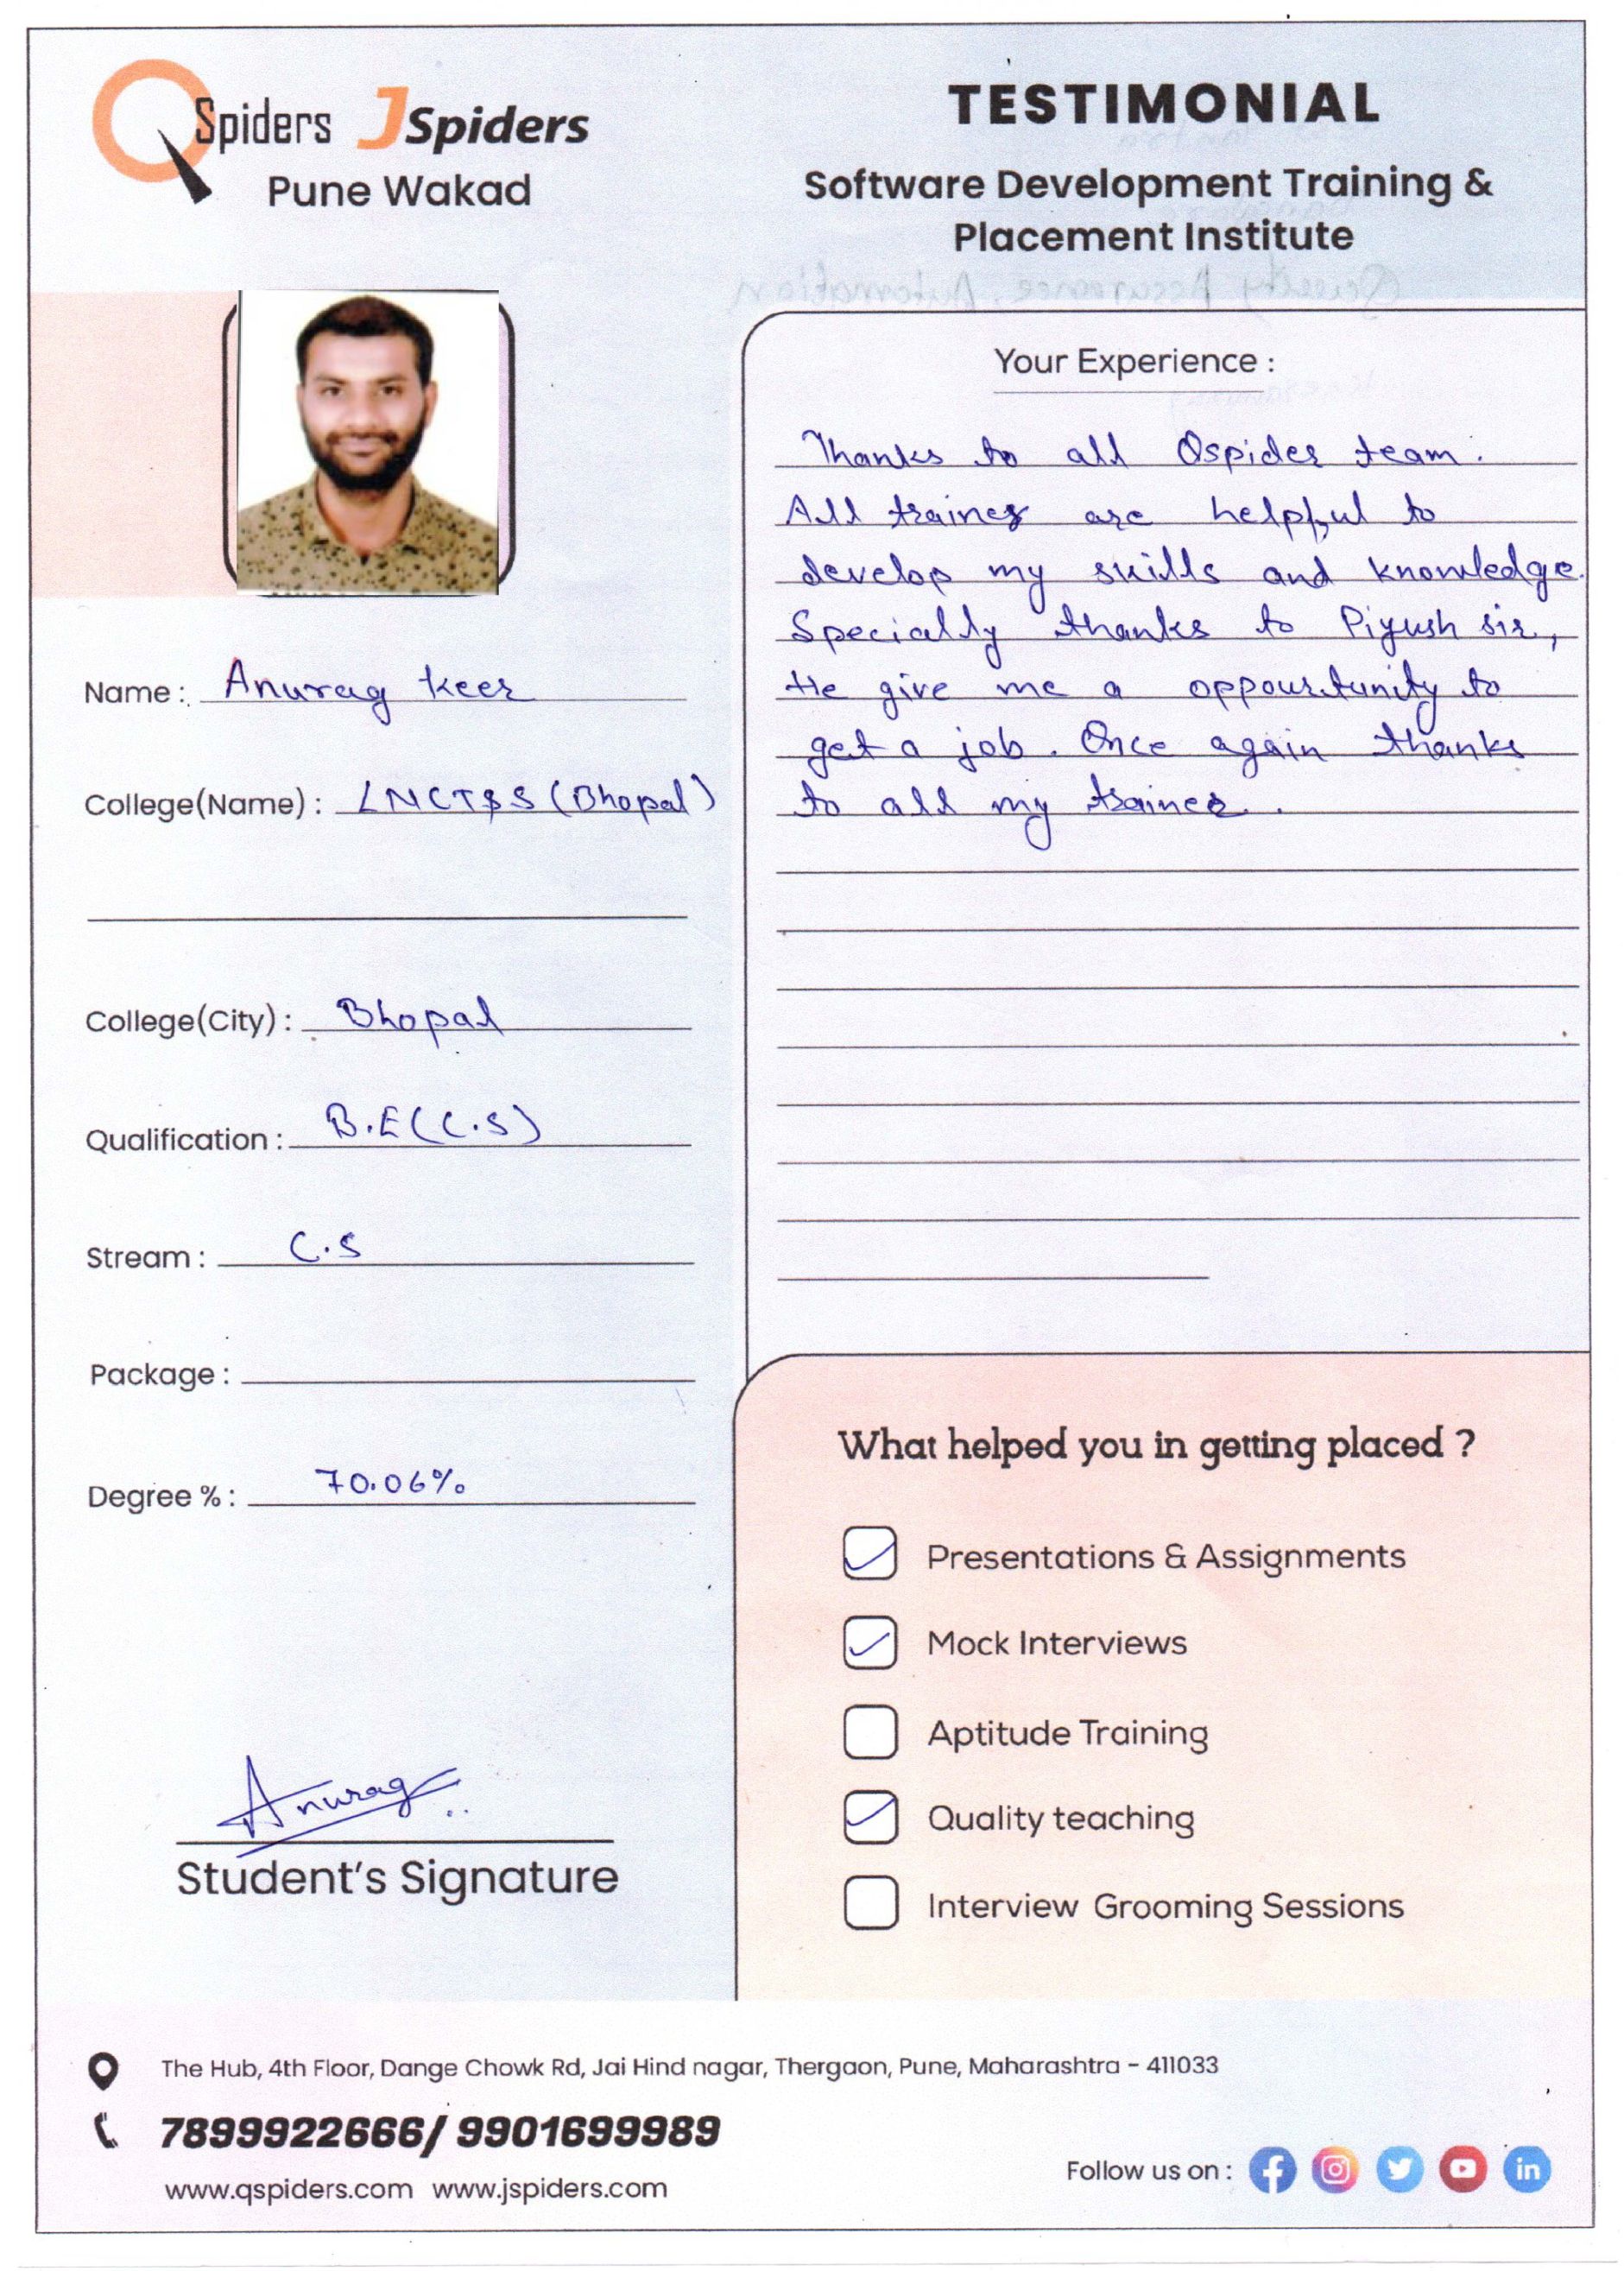 QSpiders JSpiders
Pune Wakad
TESTIMONIAL
Software Development Training &
Placement Institute
Name : Anurag Keer
College(Name) : LNCT&S (Bhopal)
College(City) : Bhopal
Qualification : B.E(C.S)
Stream : C.S
Package :
Degree % : 70.06%
Anurag
Student's Signature
Your Experience :
Thanks to all Qspider team.
All trainer are helpful to
develop my skills and knowledge.
Specially thanks to Piyush sir,
He give me a oppourtunity to
get a job. Once again thanks
to all my trainer.
What helped you in getting placed ?
Presentations & Assignments
Mock Interviews
Aptitude Training
Quality teaching
Interview Grooming Sessions
The Hub, 4th Floor, Dange Chowk Rd, Jai Hind nagar, Thergaon, Pune, Maharashtra - 411033
7899922666/ 9901699989
www.qspiders.com www.jspiders.com
Follow us on :